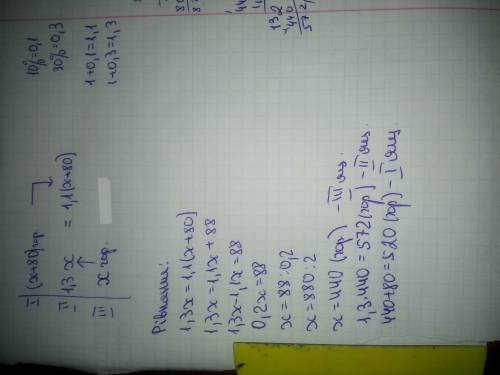 I (x+80)гор.
II 1,3 x = 1,1(x+80)
III x гор.
10%=0,1
30%=0,3
1+0,1=1,1
1+0,3=1,3
Рівняння:
1,3x=1,1(x+80)
1,3x=1,1x+88
1,3x-1,1x=88
0,2x=88
x=88:0,2
x=880:2
x=440 (гор) - III ящ.
1,3·440=572(гор)-II ящ.
440+80=520(гор)-I ящ
132
440
572